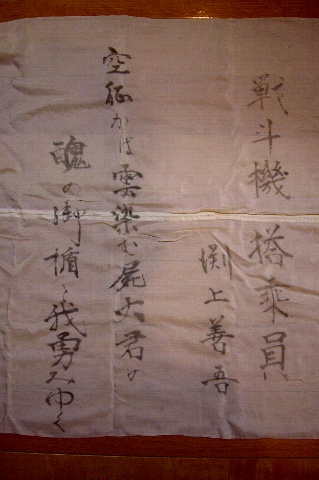 戦斗機搭乗員
渕上善吾
空征かば雲染む屍大君の
醜の御楯と我勇みゆく